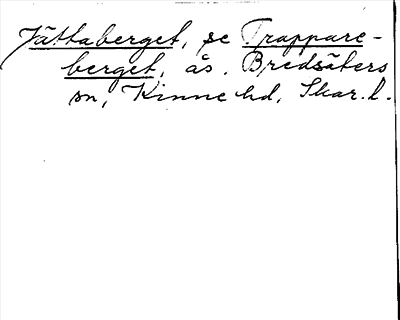 Jättaberget, se Trappare-
berget, ås. Bredsäters
sn, Kinne hd, Skar. l.